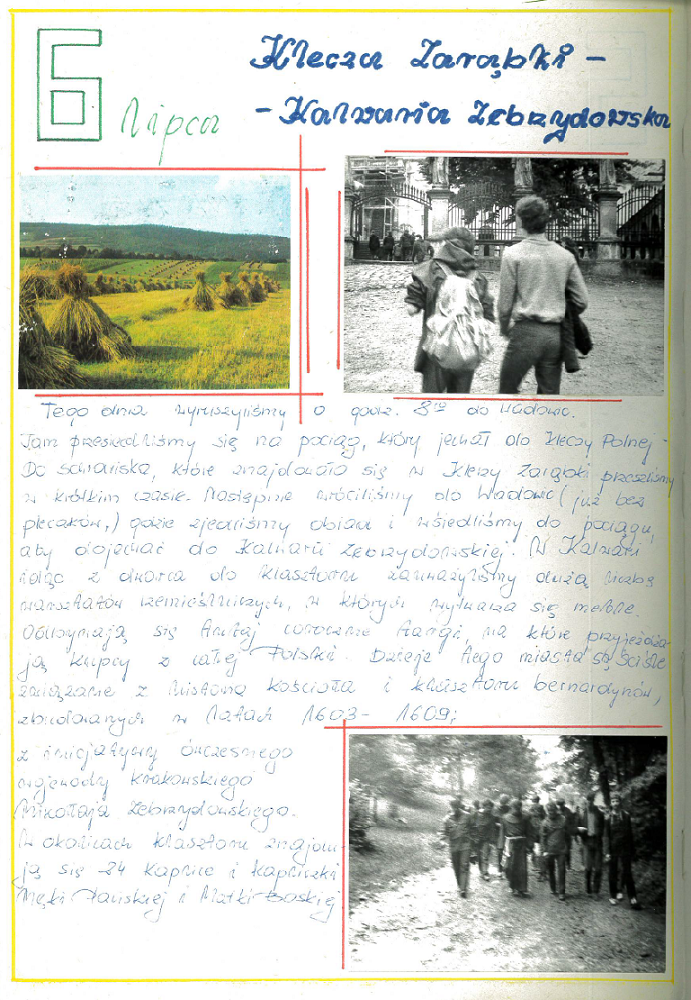 6 lipca
Klecza Zarąbki -
- Kalwaria Zebrzydowska
Tego dnia wyruszyliśmy o godz. 8¹² do Wadowic.
Tam przesiedliśmy się na pociąg, który jechał do Kleczy Dolnej -
Do schroniska, które znajdowało się w Kleczy Zarąbki przeszliśmy
w krótkim czasie. Następnie wróciliśmy do Wadowic (już bez
plecaków,) gdzie zjedliśmy obiad i wsiedliśmy do pociągu,
aby dojechać do Kalwarii Zebrzydowskiej. W Kalwarii
idąc z dworca do klasztoru zauważyliśmy dużą liczbę
warsztatów rzemieślniczych, w których wytwarza się meble.
Odbywają się tutaj coroczne targi, na które przyjeżdża-
ją kupcy z całej Polski. Dzieje tego miasta są ściśle
związane z historią kościoła i klasztoru bernardynów,
zbudowanych w latach 1603 - 1609;
z inicjatywy ówczesnego
wojewody krakowskiego
Mikołaja Zebrzydowskiego.
W okolicach klasztoru znajdu-
ją się 24 kaplice i kapliczki
Męki Pańskiej i Matki Boskiej